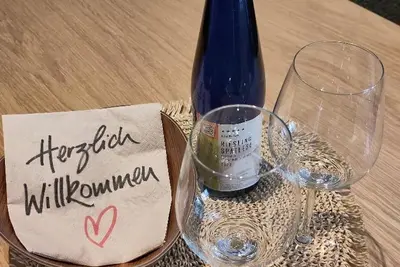 Herzlich
Willkommen
RIESLING
SPÄTLESE